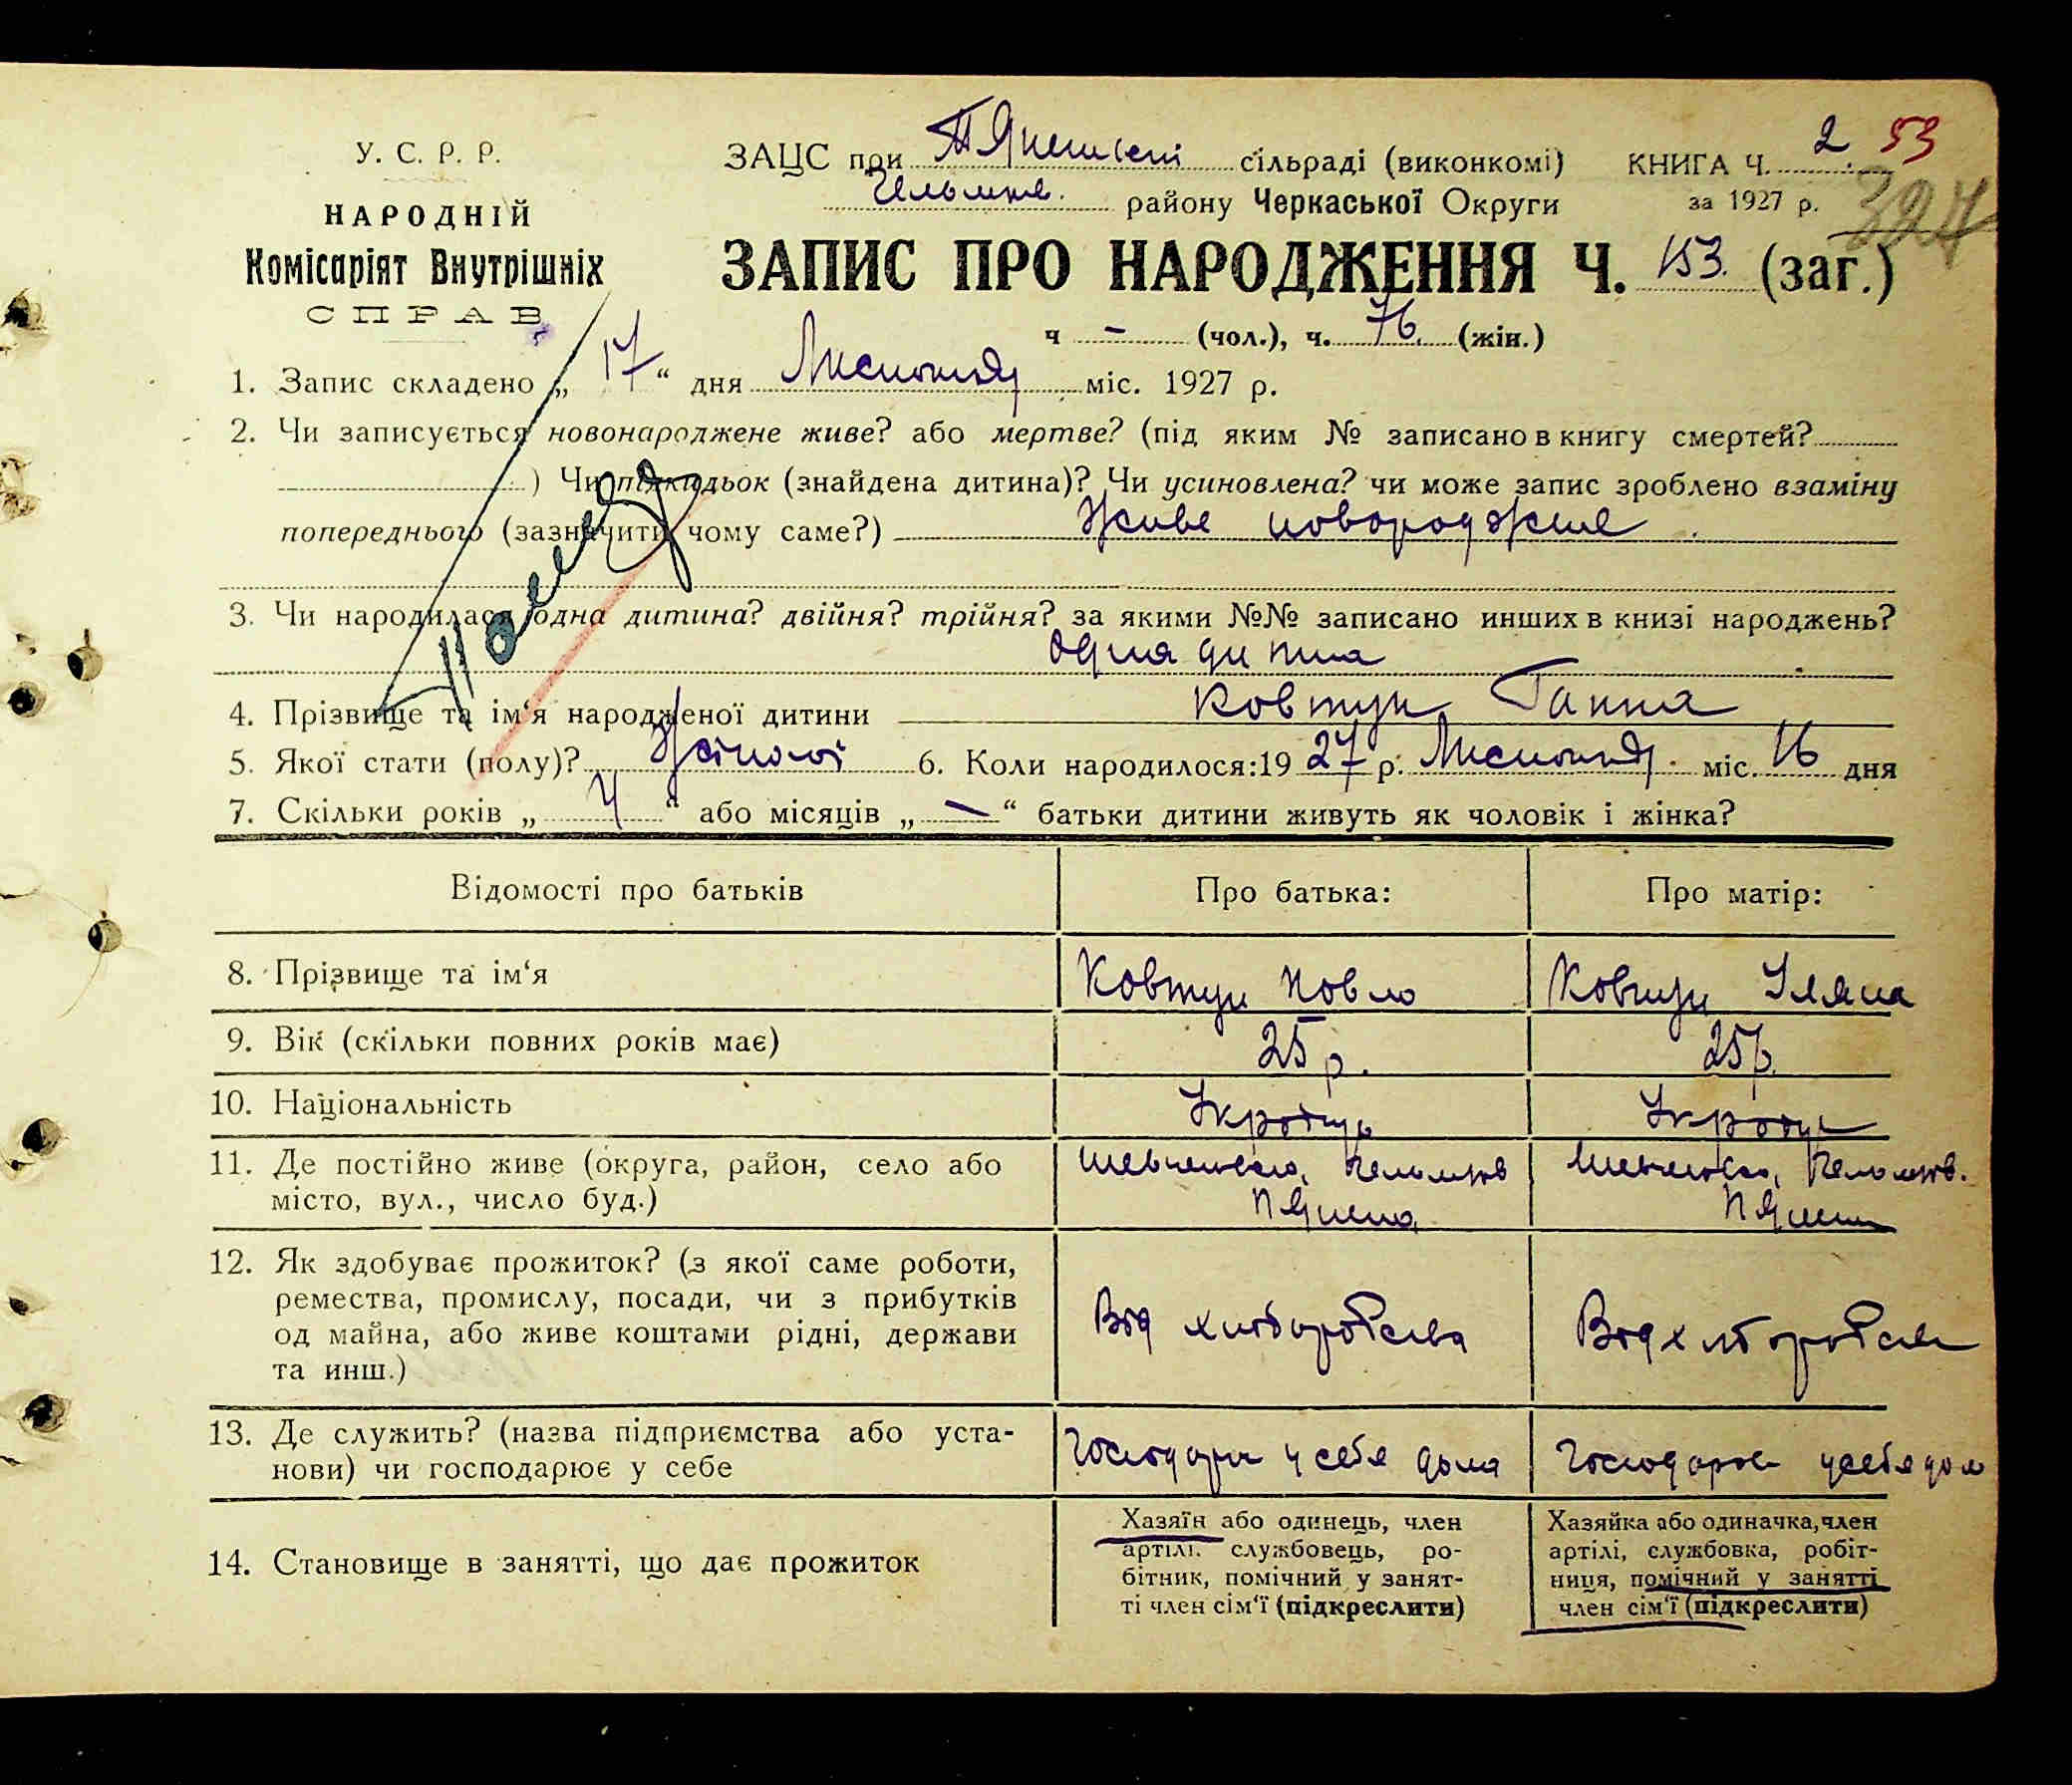 У. С. Р. Р.
НАРОДНІЙ
Комісаріят Внутрішніх
СПРАВ
ЗАЦС при сільраді (виконкомі) КНИГА Ч. 2. 53
району Черкаської Округи за 1927 р. 327
ЗАПИС ПРО НАРОДЖЕННЯ Ч. 153. (заг.)
ч – (чол.), ч. 76. (жін.)
1. Запис складено „ 17 “ дня Листопад міс. 1927 р.
2. Чи записується новонароджене живе? або мертве? (під яким № записано в книгу смертей?
) Чи підкидьок (знайдена дитина)? Чи усиновлена? чи може запис зроблено взаміну
попереднього (зазначити чому саме?) Живе новороджене
3. Чи народилася одна дитина? двійня? трійня? за якими №№ записано инших в книзі народжень?
Одна дитина
4. Прізвище та ім‘я народженої дитини Ковтун Ганна
5. Якої стати (полу)? Жіночої 6. Коли народилося: 1927 р. Листопад. міс. 16 дня
7. Скільки років „ 4 “ або місяців „ – “ батьки дитини живуть як чоловік і жінка?
Відомості про батьків Про батька: Про матір:
8. Прізвище та ім‘я Ковтун Повло Ковтун Уляна
9. Вік (скільки повних років має) 25 р. 25 р.
10. Національність Украінць Украінц
11. Де постійно живе (округа, район, село або Шевченково, Шевченково,
місто, вул., число буд.)
12. Як здобуває прожиток? (з якої саме роботи,
ремества, промислу, посади, чи з прибутків
од майна, або живе коштами рідні, держави Від хліборобства Від хліборобств
та инш.)
13. Де служить? (назва підприємства або уста-
нови) чи господарює у себе Господарю у себя дома Господарює у себя дом
14. Становище в занятті, що дає прожиток
Хазяїн або одинець, член
артілі. службовець, ро-
бітник, помічний у занят-
ті член сім‘ї (підкреслити)
Хазяйка або одиначка, член
артілі, службовка, робіт-
ниця, помічний у занятті
член сім‘ї (підкреслити)